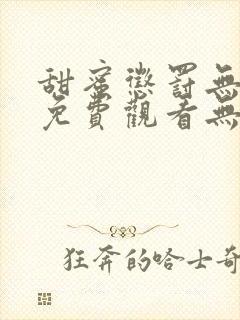 甜蜜懲罰無
免費觀看無
狂奔的哈士奇